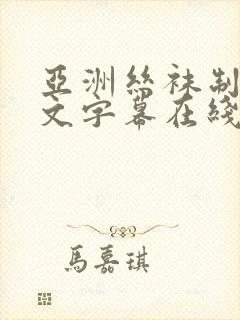 亞洲絲袜制
文字幕在綫
馬嘉琪